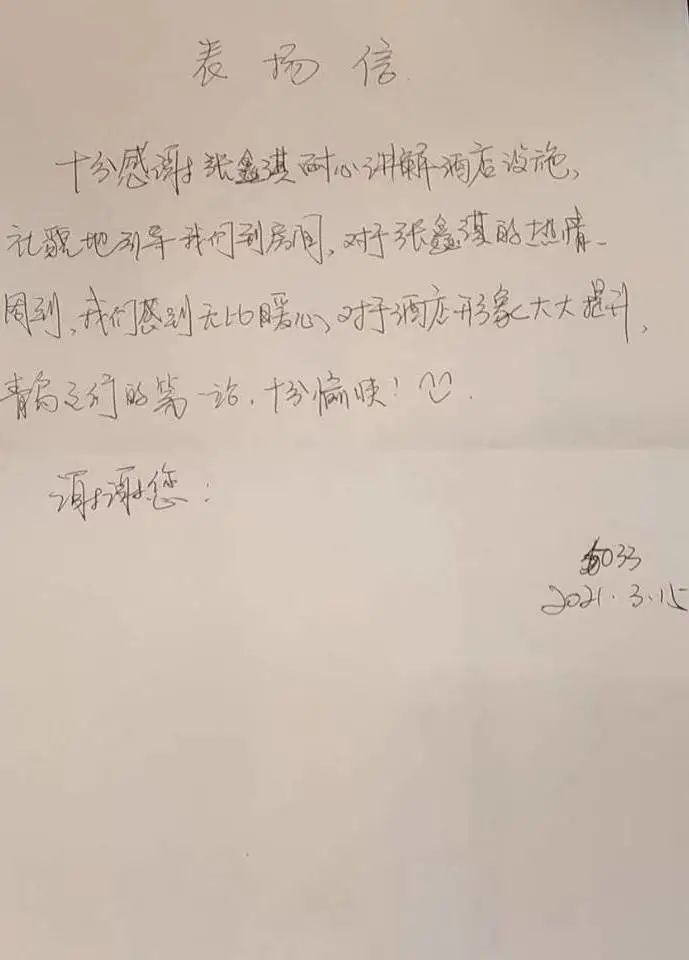 表扬信.
十分感谢张鑫淇耐心讲解酒店设施,
礼貌地引导我们到房间,对于张鑫淇的热情、
周到,我们感到无比暖心,对于酒店形象大大提升,
青岛之行的第一站,十分愉快!
谢谢您:
033
2021.3.15